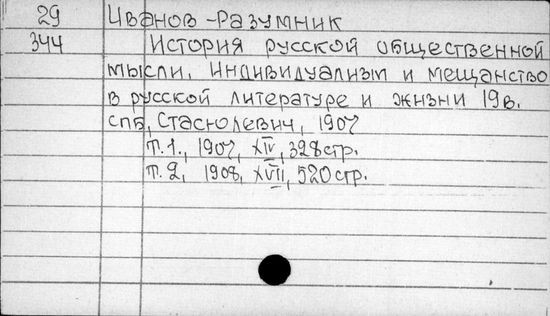 29 Иванов-Разумник
344 История русской общественной
мысли. Индивидуализм и мещанство
в русской литературе и жизни 19 в.
СПБ, Стасюлевич, 1907
т. 1., 1907, XIV, 328 стр.
т. 2, 1908, XVII, 520 стр.